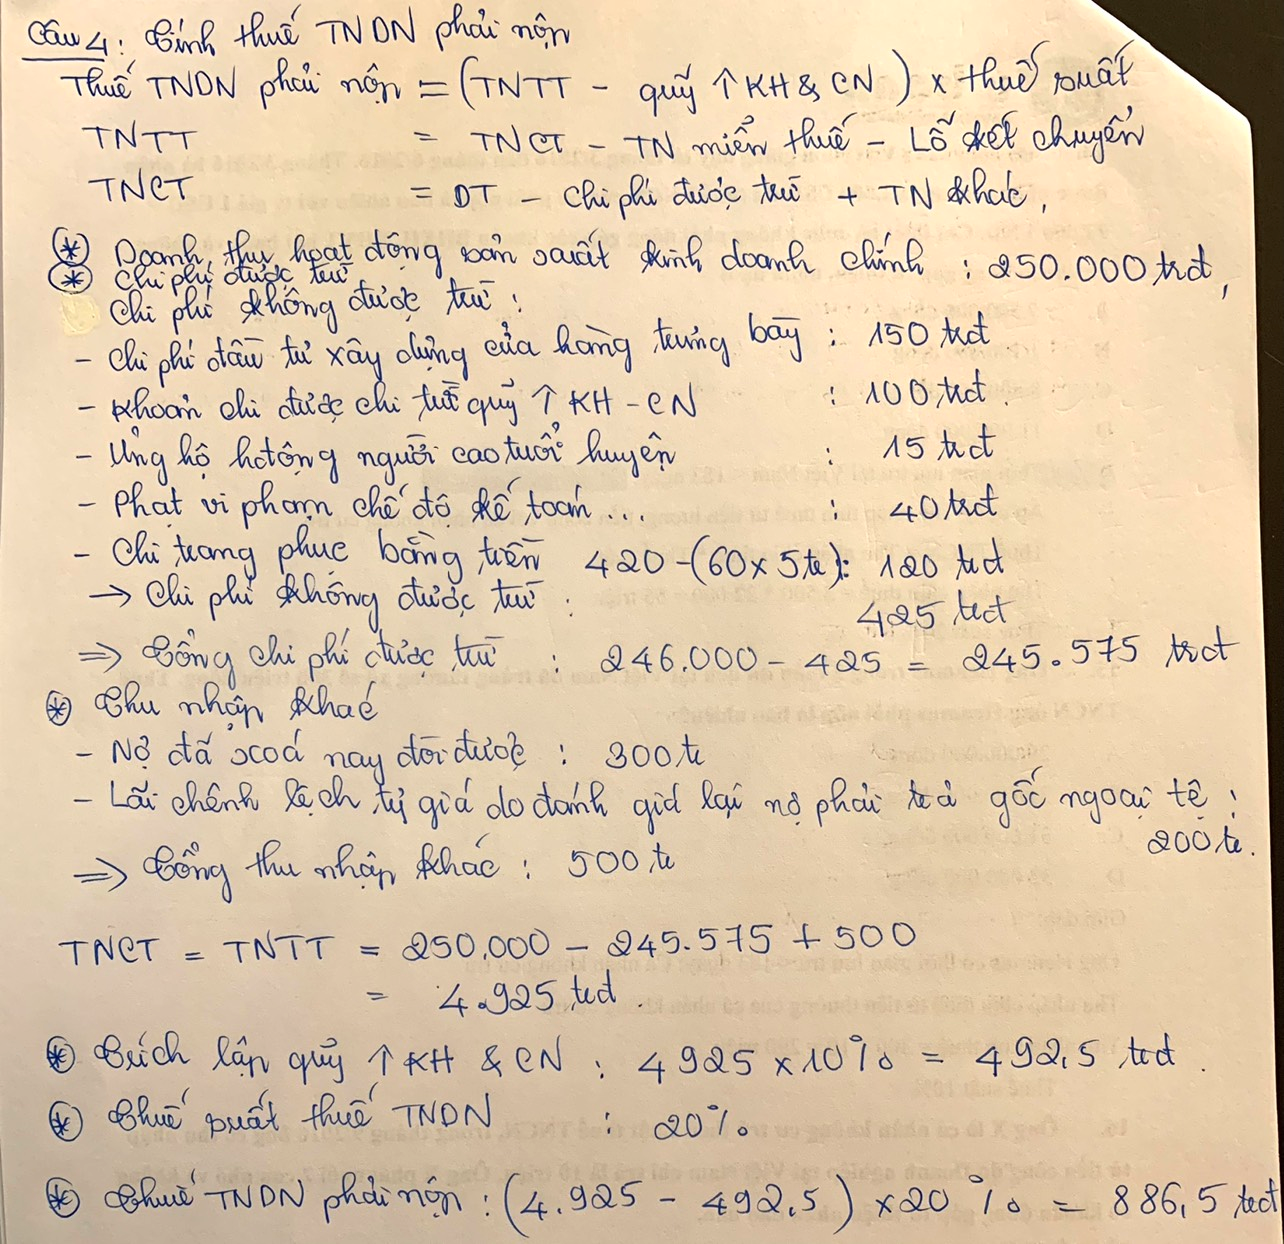 Câu 4: Tính thuế TNDN phải nộp
Thuế TNDN phải nộp = (TNTT - quỹ ↑ KH & CN) x thuế suất
TNTT = TNCT - TN miễn thuế - Lỗ kết chuyển
TNCT = DT - chi phí được trừ + TN khác,
* Doanh thu hoạt động sản suất kinh doanh chính : 250.000 trđ,
* Chi phí được trừ
Chi phí không được trừ :
- Chi phí đầu tư xây dựng cửa hàng trưng bày : 150 trđ
- Khoản chi được chi từ quỹ ↑ KH - CN : 100 trđ.
- Ủng hộ hđộng người cao tuổi huyện : 15 trđ
- Phạt vi phạm chế độ kế toán ... : 40 trđ
- Chi trang phục bằng tiền 420 - (60 x 5tr): 120 trđ
→ Chi phí không được trừ : 425 trđ
⇒ Tổng chi phí được trừ : 246.000 - 425 = 245.575 trđ
* Thu nhập khác
- Nợ đã xoá nay đòi được : 300 tr
- Lãi chênh lệch tỷ giá do đánh giá lại nợ phải trả gốc ngoại tệ :
200 tr.
⇒ Tổng thu nhập khác : 500 tr
TNCT = TNTT = 250.000 - 245.575 + 500
= 4.925 trđ.
* Trích lập quỹ ↑ KH & CN : 4925 x 10% = 492,5 trđ.
* Thuế suất thuế TNDN : 20%
* Thuế TNDN phải nộp : (4.925 - 492,5) x 20% = 886,5 trđ